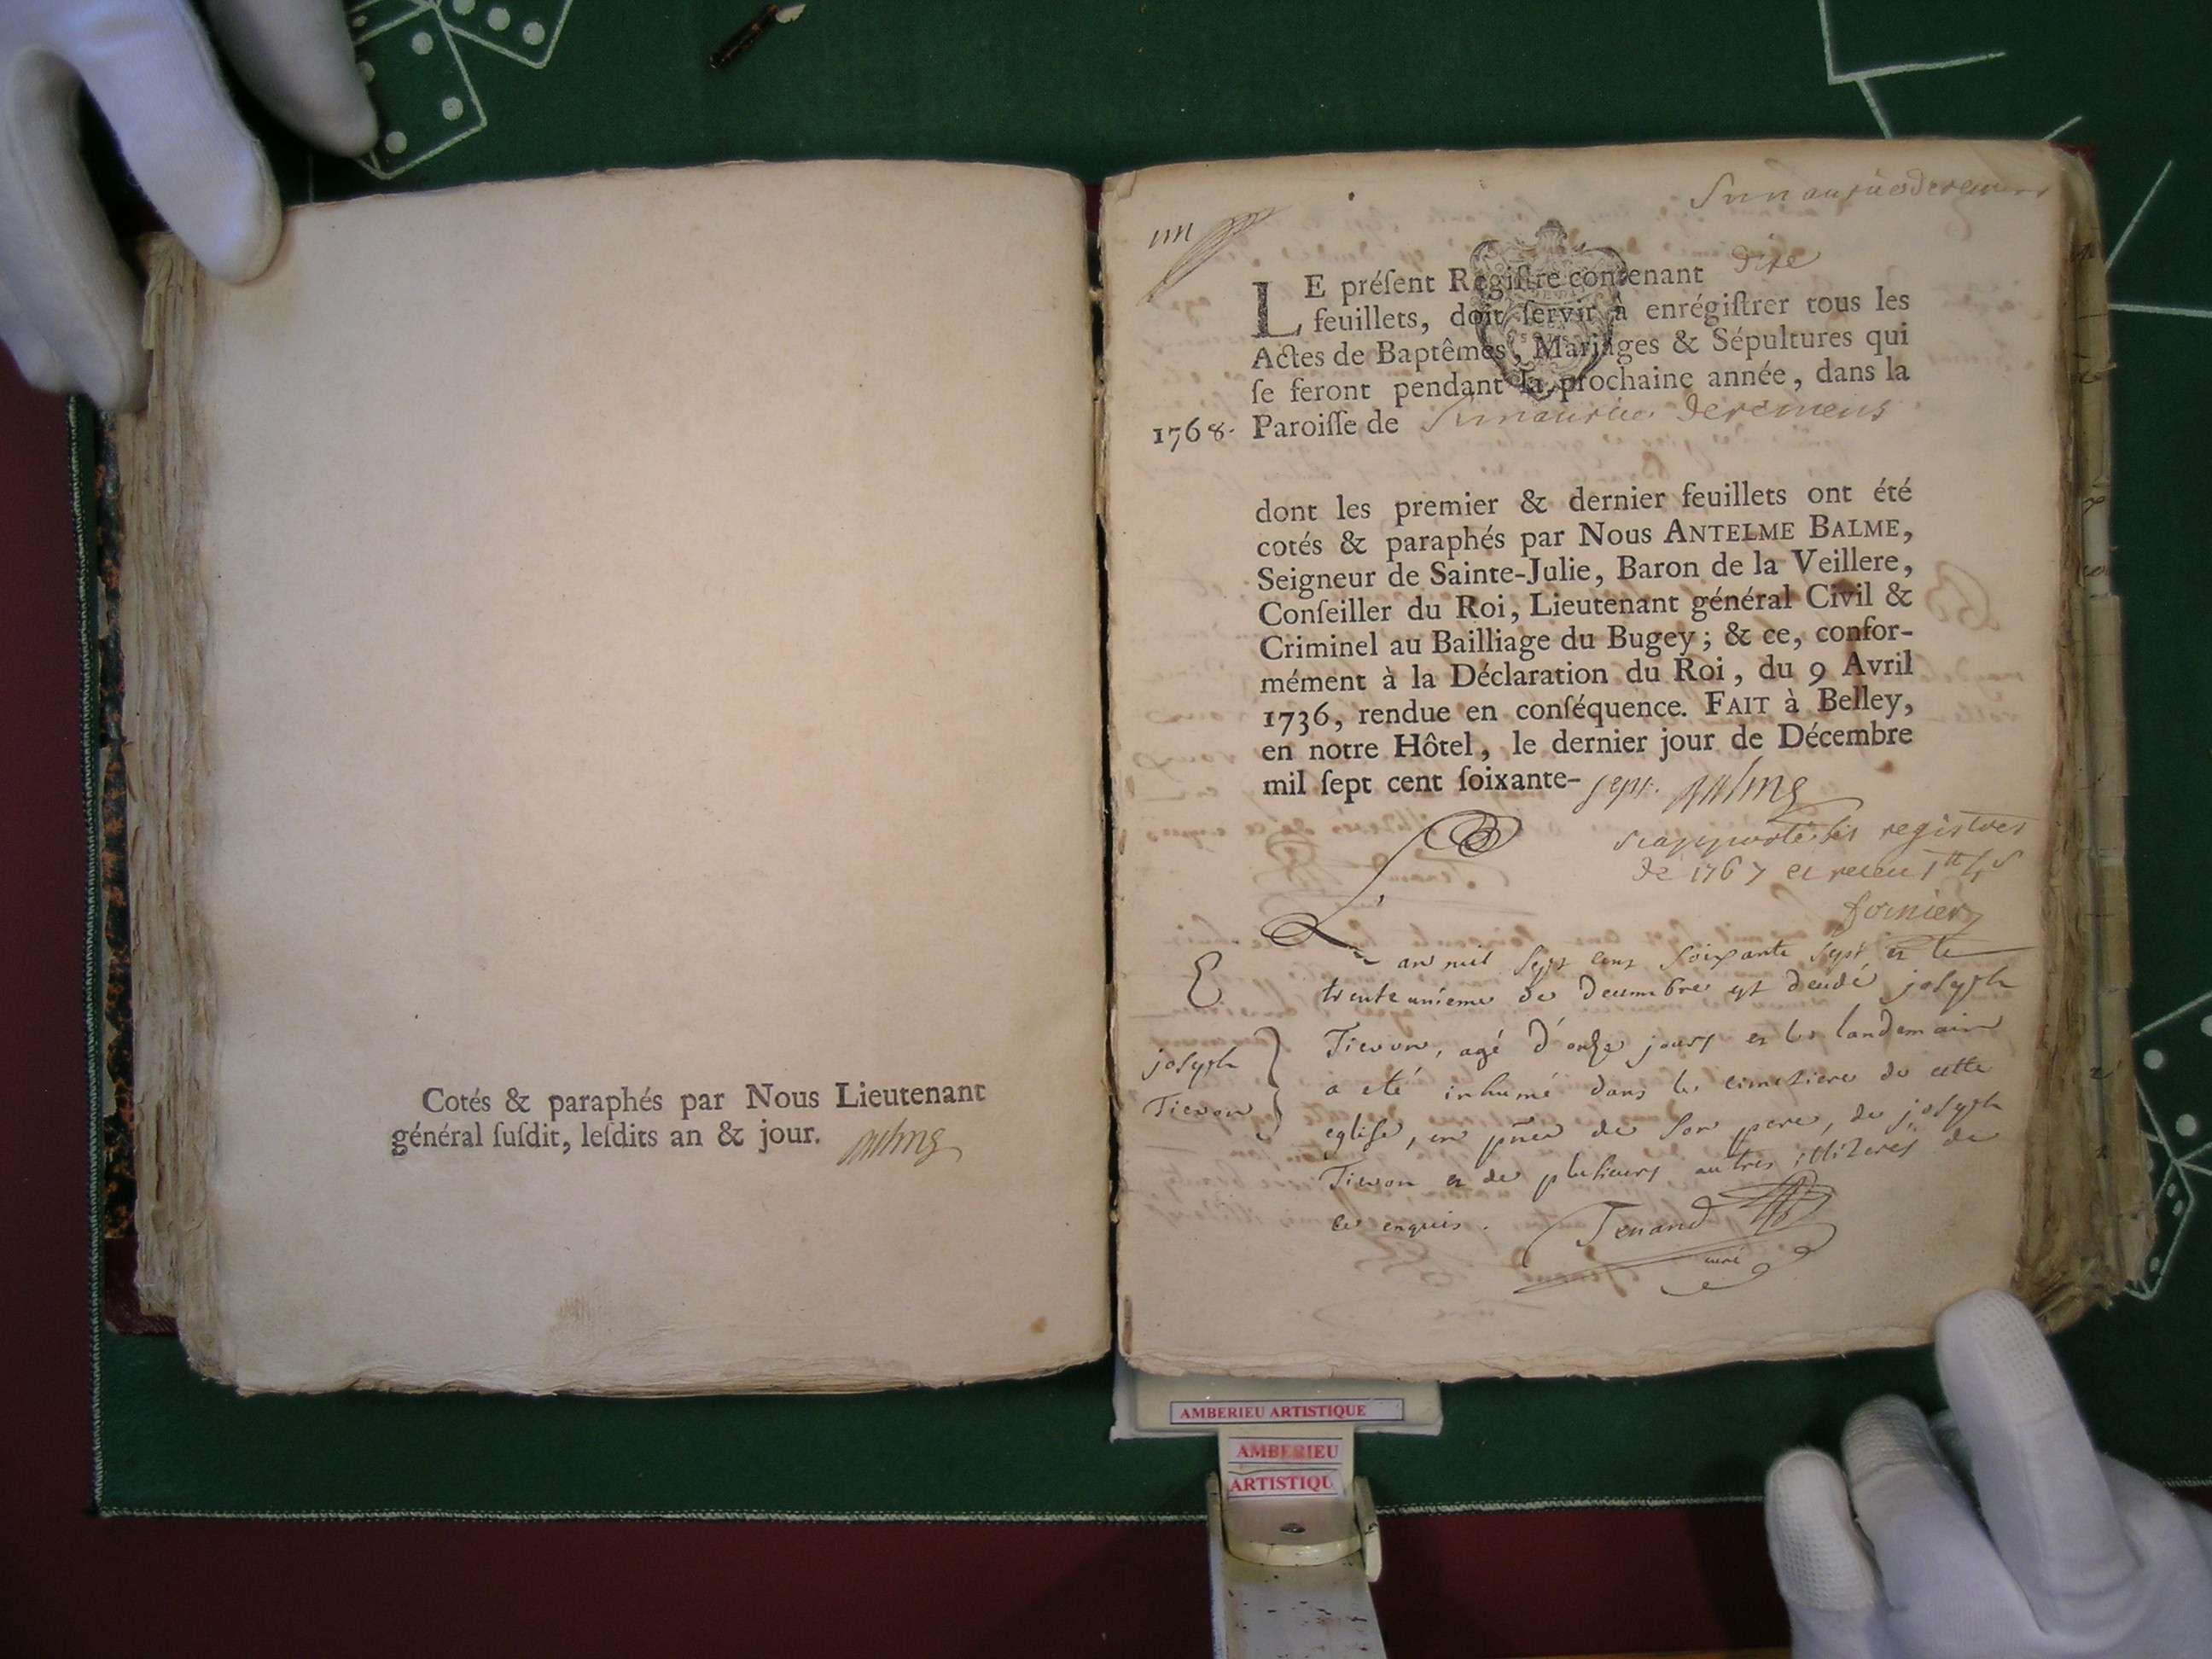 Cotés & paraphés par Nous Lieutenant
général ſuſdit, leſdits an & jour.
dixe
LE préſent Regiſtre contenant
feuillets, doit ſervir à enrégiſtrer tous les
Actes de Baptêmes, Mariages & Sépultures qui
ſe feront pendant la prochaine année, dans la
1768. Paroiſſe de
dont les premier & dernier feuillets ont été
cotés & paraphés par Nous ANTELME BALME,
Seigneur de Sainte-Julie, Baron de la Veillere,
Conſeiller du Roi, Lieutenant général Civil &
Criminel au Bailliage du Bugey; & ce, confor-
mément à la Déclaration du Roi, du 9 Avril
1736, rendue en conſéquence. FAIT à Belley,
en notre Hôtel, le dernier jour de Décembre
mil ſept cent ſoixante-sept. Balme
registres
de 1767 et receu
fornier
L'an mil sept cent soixante sept et le
trente unieme de decembre est décédé joseph
joseph
Tievon
Tievon, agé d'onze jours et le landemain
a eté inhumé dans le cimetiere de cette
eglise, en pñce de son pere, de joseph
Tievon et de plusieurs autres illiterés de
ce enquis. Tenand
curé
AMBERIEU ARTISTIQUE
AMBERIEU
ARTISTIQU